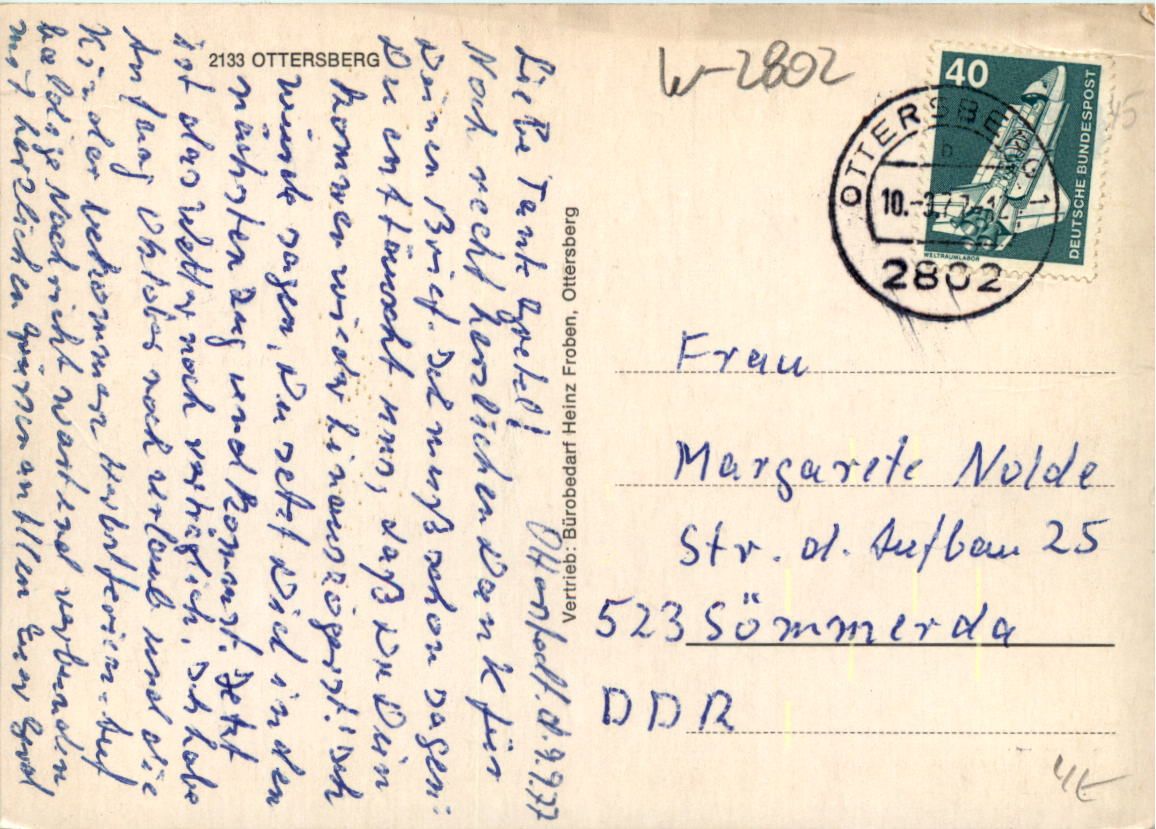 2133 OTTERSBERG
Otterstedt. d. 9.9.77
Liebe Tante Gretel!
Noch recht herzlichen Dank für
Deinen Brief. Ich muß schon sagen:
Du enttäuscht uns, daß Du Dein
kommen wieder hinauszögerst! Ich
würde sagen, Du setzt Dich in den
nächsten Zug und kommst. Jetzt
ist das Wetter noch verträglich, Ich habe
Anfang Oktober noch Urlaub und die
Kinder bekommen Herbstferien. Auf
baldige Nachricht wartend verbunden
mit herzlichen Grüssen an Allen Euer
Vertrieb: Bürobedarf Heinz Froben, Ottersberg
W-2802
40
DEUTSCHE BUNDESPOST
WELTRAUMLABOR
OTTERSBERG 1
b
10.-
2802
Frau
Margarete Nolde
Str. d. Aufbau 25
523 Sömmerda
DDR